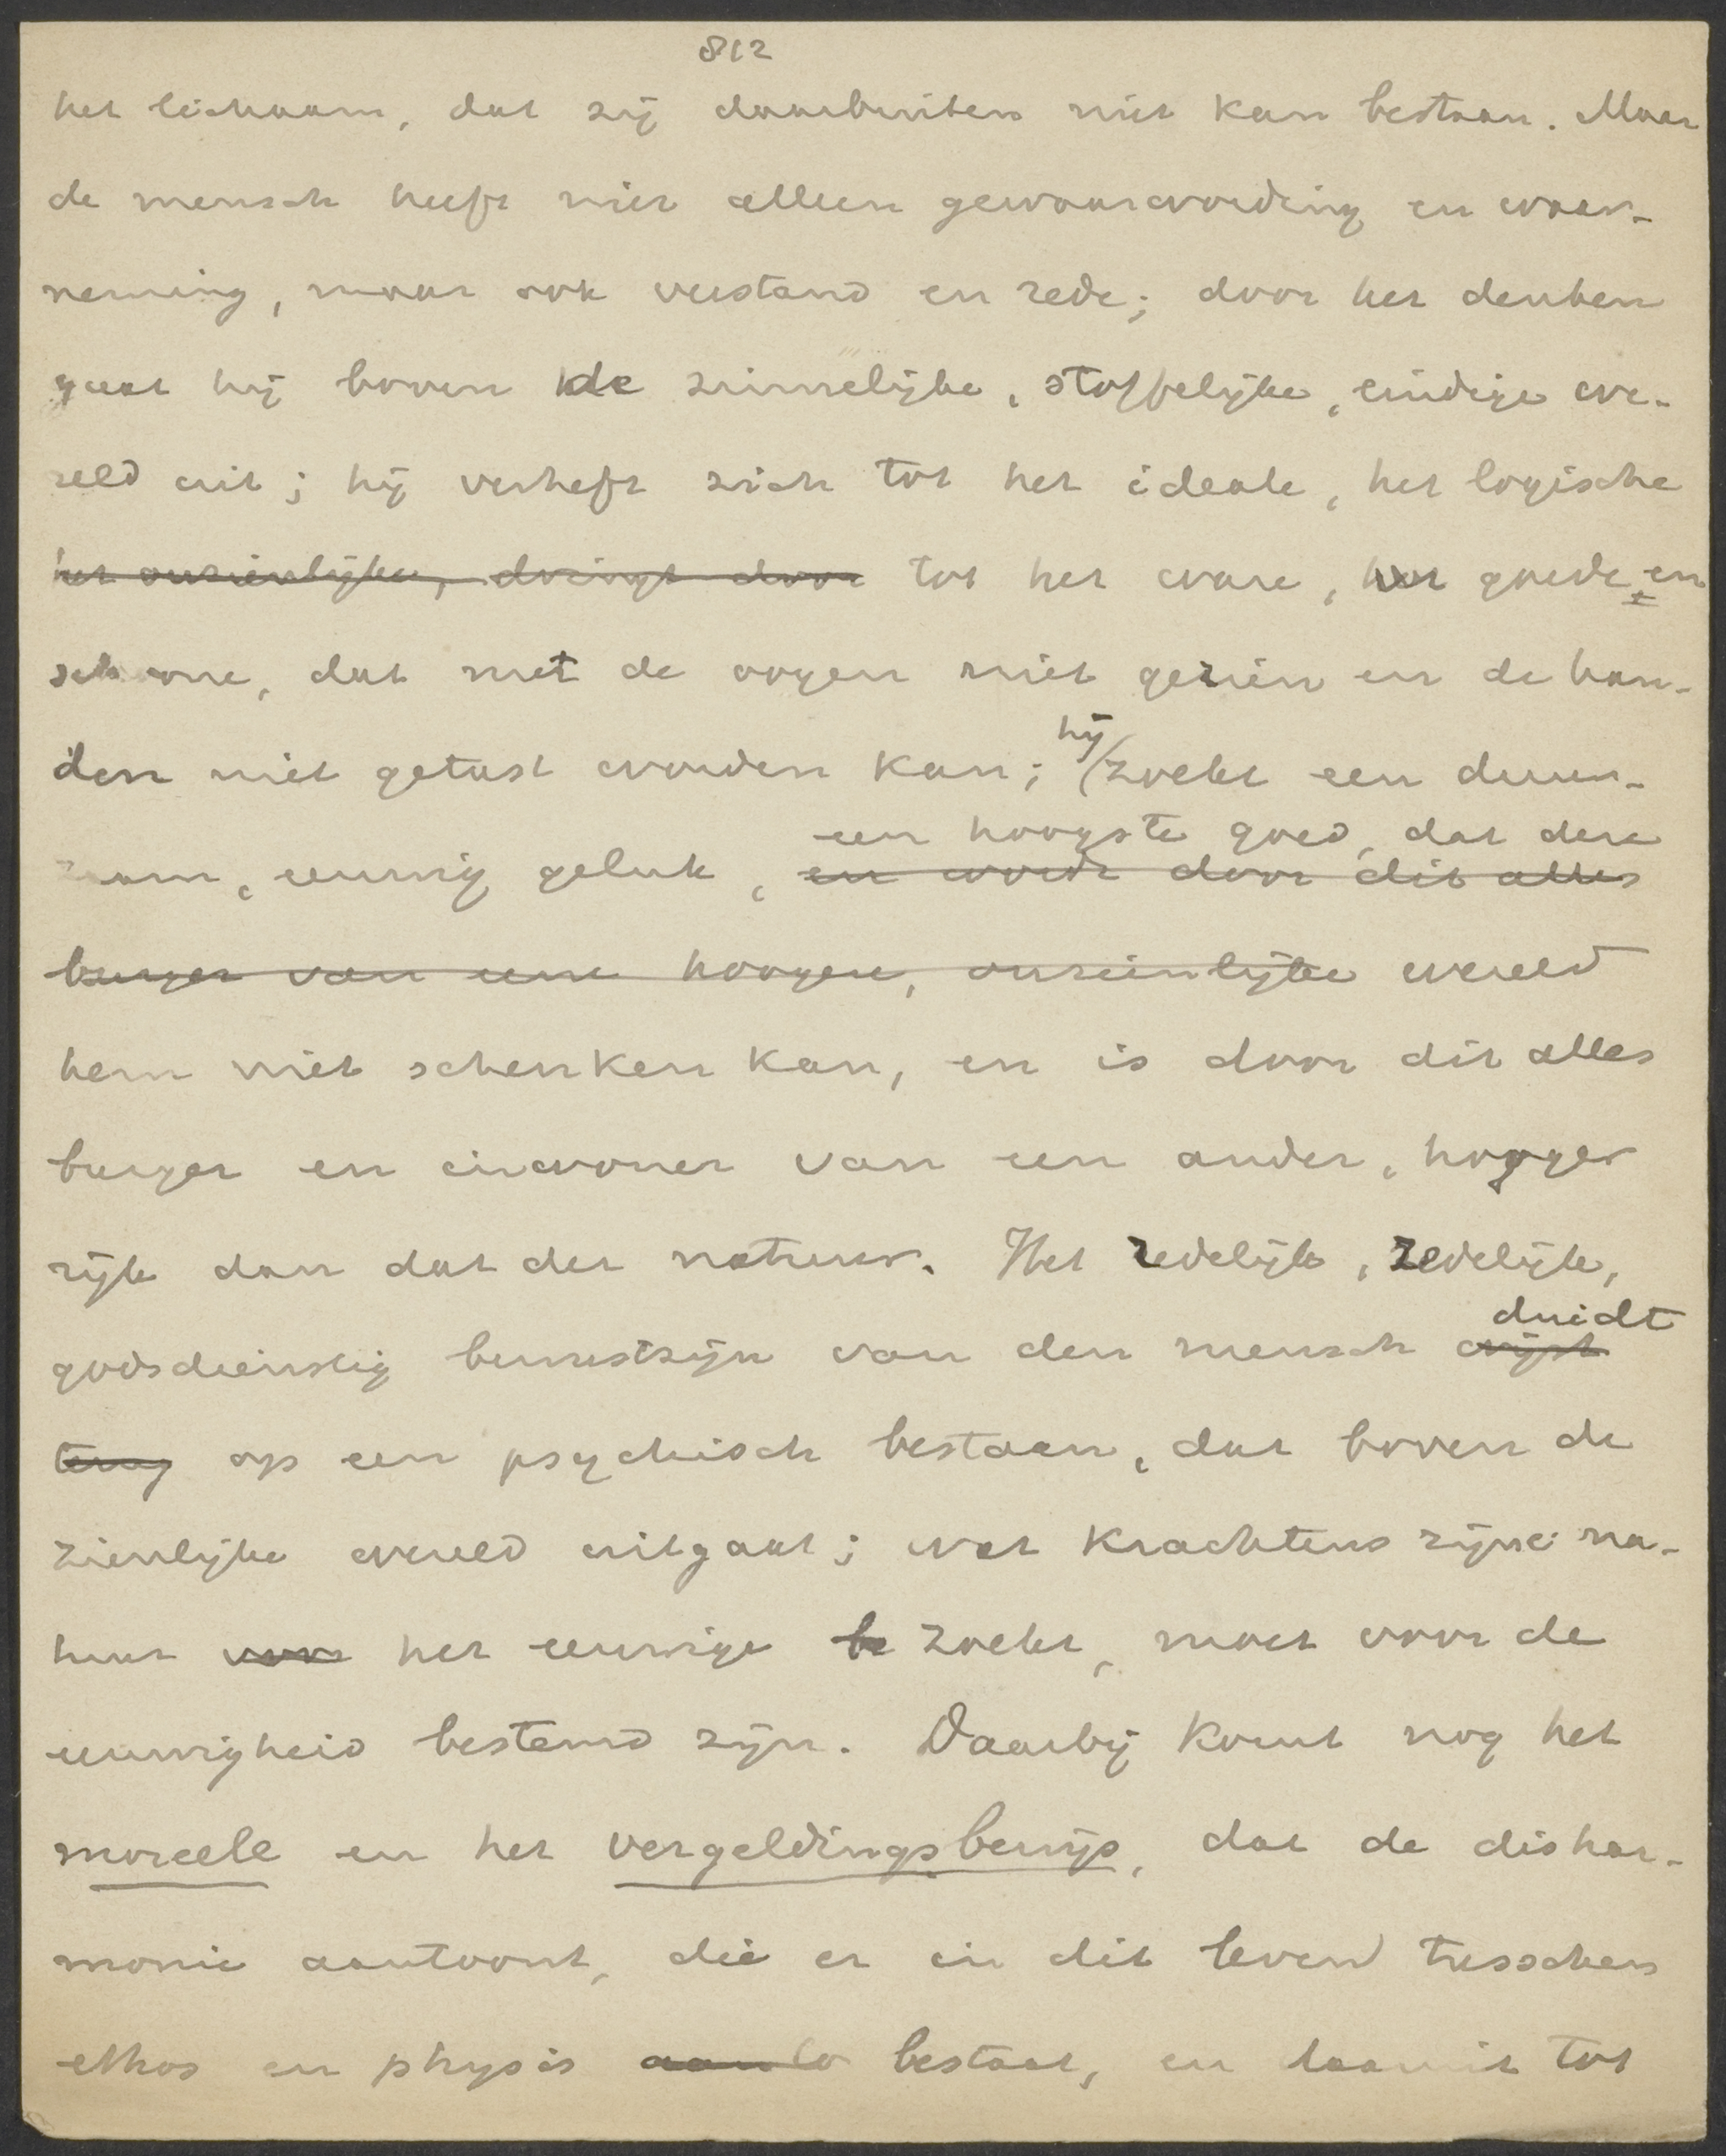 812
het lichaam, dat zij daarbuiten niet kan bestaan. Maar
de mensch heeft niet alleen gewaarwording en waar-
neming, maar ook verstand en rede; door het denken
gaat hij boven de zinnelijke, stoffelijke, eindige we-
reld uit; hij verheft zich tot het ideale, het logische
het onzienlijke, dringt door tot het ware, het goede en
schoone, dat met de oogen niet gezien en de han-
hij
den niet getast worden kan; zoekt een duur-
een hoogste goed, dat deze
zaam, eeuwig geluk, en wordt door dit alles
burger van eene hoogere, onzienlijke wereld
hem niet schenken kan, en is door dit alles
burger en inwoner van een ander, hooger
rijk dan dat der natuur. Het redelijk, zedelijk,
duidt
godsdienstig bewustzijn van den mensch wijst
terug op een psychisch bestaan, dat boven de
zienlijke wereld uitgaat; wat krachtens zijne na-
tuur voor het eeuwige be zoekt, moet voor de
eeuwigheid bestemd zijn. Daarbij komt nog het
moreele en het vergeldingsbewijs, dat de dishar-
monie aantoont, die er in dit leven tusschen
ethos en physis bestaat, en daaruit tot